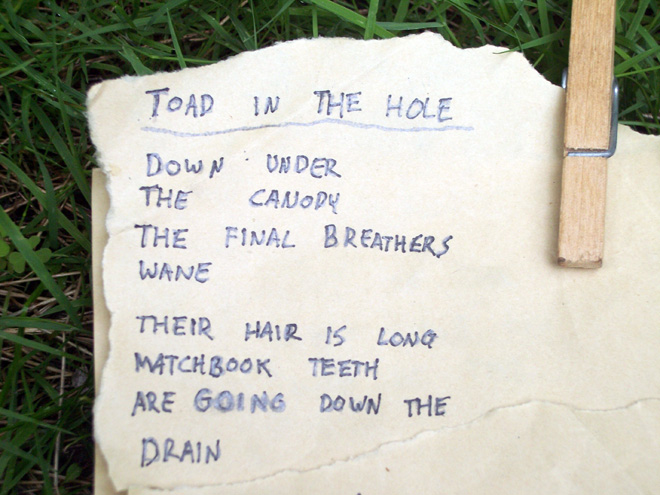 TOAD IN THE HOLE
DOWN UNDER
THE CANODY
THE FINAL BREATHERS
WANE
THEIR HAIR IS LONG
MATCHBOOK TEETH
ARE GOING DOWN THE
DRAIN